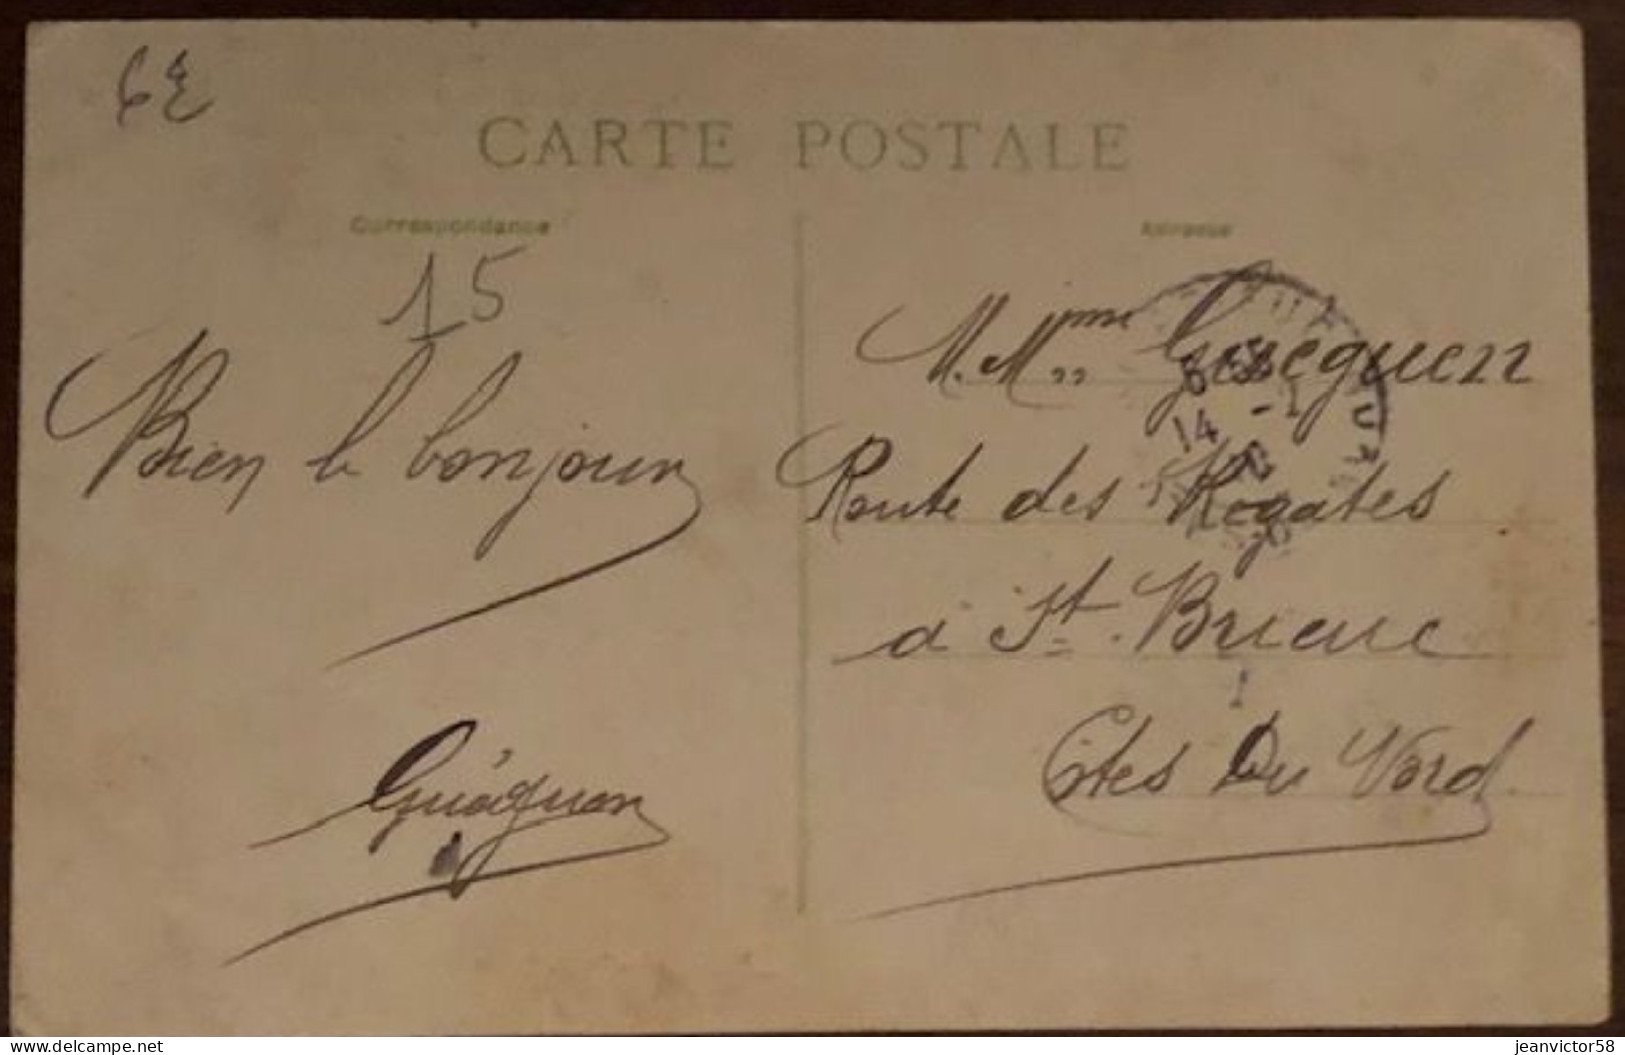 6E
CARTE POSTALE
Correspondance
Adresse
15
M. Mme Guéguen
6 55
14 - 1
Bien le bonjour
Route des Régates
à St. Brieuc
Côtes Du Nord
Guéguen
jeanvictor58